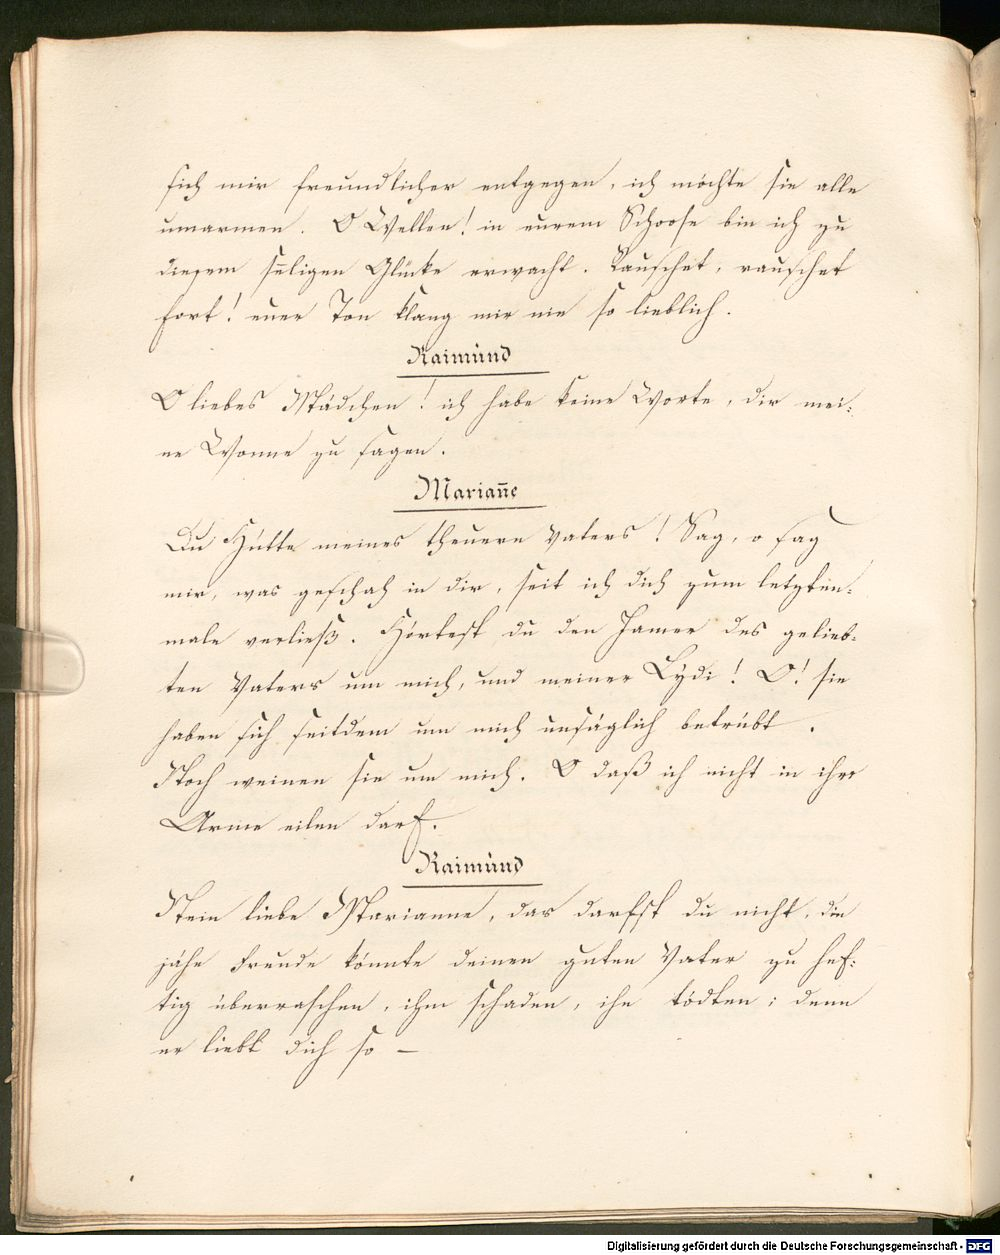 sich mir freundlicher entgegen, ich möchte sie alle
umarmen. O Wellen! in eurem Schoose bin ich zu
diesem seligen Glücke erwacht. Rauschet, rauschet
fort! euer Ton klang mir nie so lieblich.
Raimund
O liebes Mädchen! ich habe keine Worte, dir mei:
ne Wonne zu sagen.
Mariañe
Du Hütte meines theuern Vaters! Sag, o sag
mir, was geschah in dir, seit ich dich zum letzten:
male verließ. Hörtest du den Jamer des gelieb:
ten Vaters um mich, und meiner Lydi! O! sie
haben sich seitdem um mich unsäglich betrübt.
Noch weinen sie um mich. O daß ich nicht in ihre
Arme eilen darf.
Raimund
Nein liebe Marianne, das darfst du nicht, die
jähe Freude könnte deinen guten Vater zu hef:
tig überraschen, ihm schaden, ihn tödten; denn
er liebt dich so –
Digitalisierung gefördert durch die Deutsche Forschungsgemeinschaft - DFG